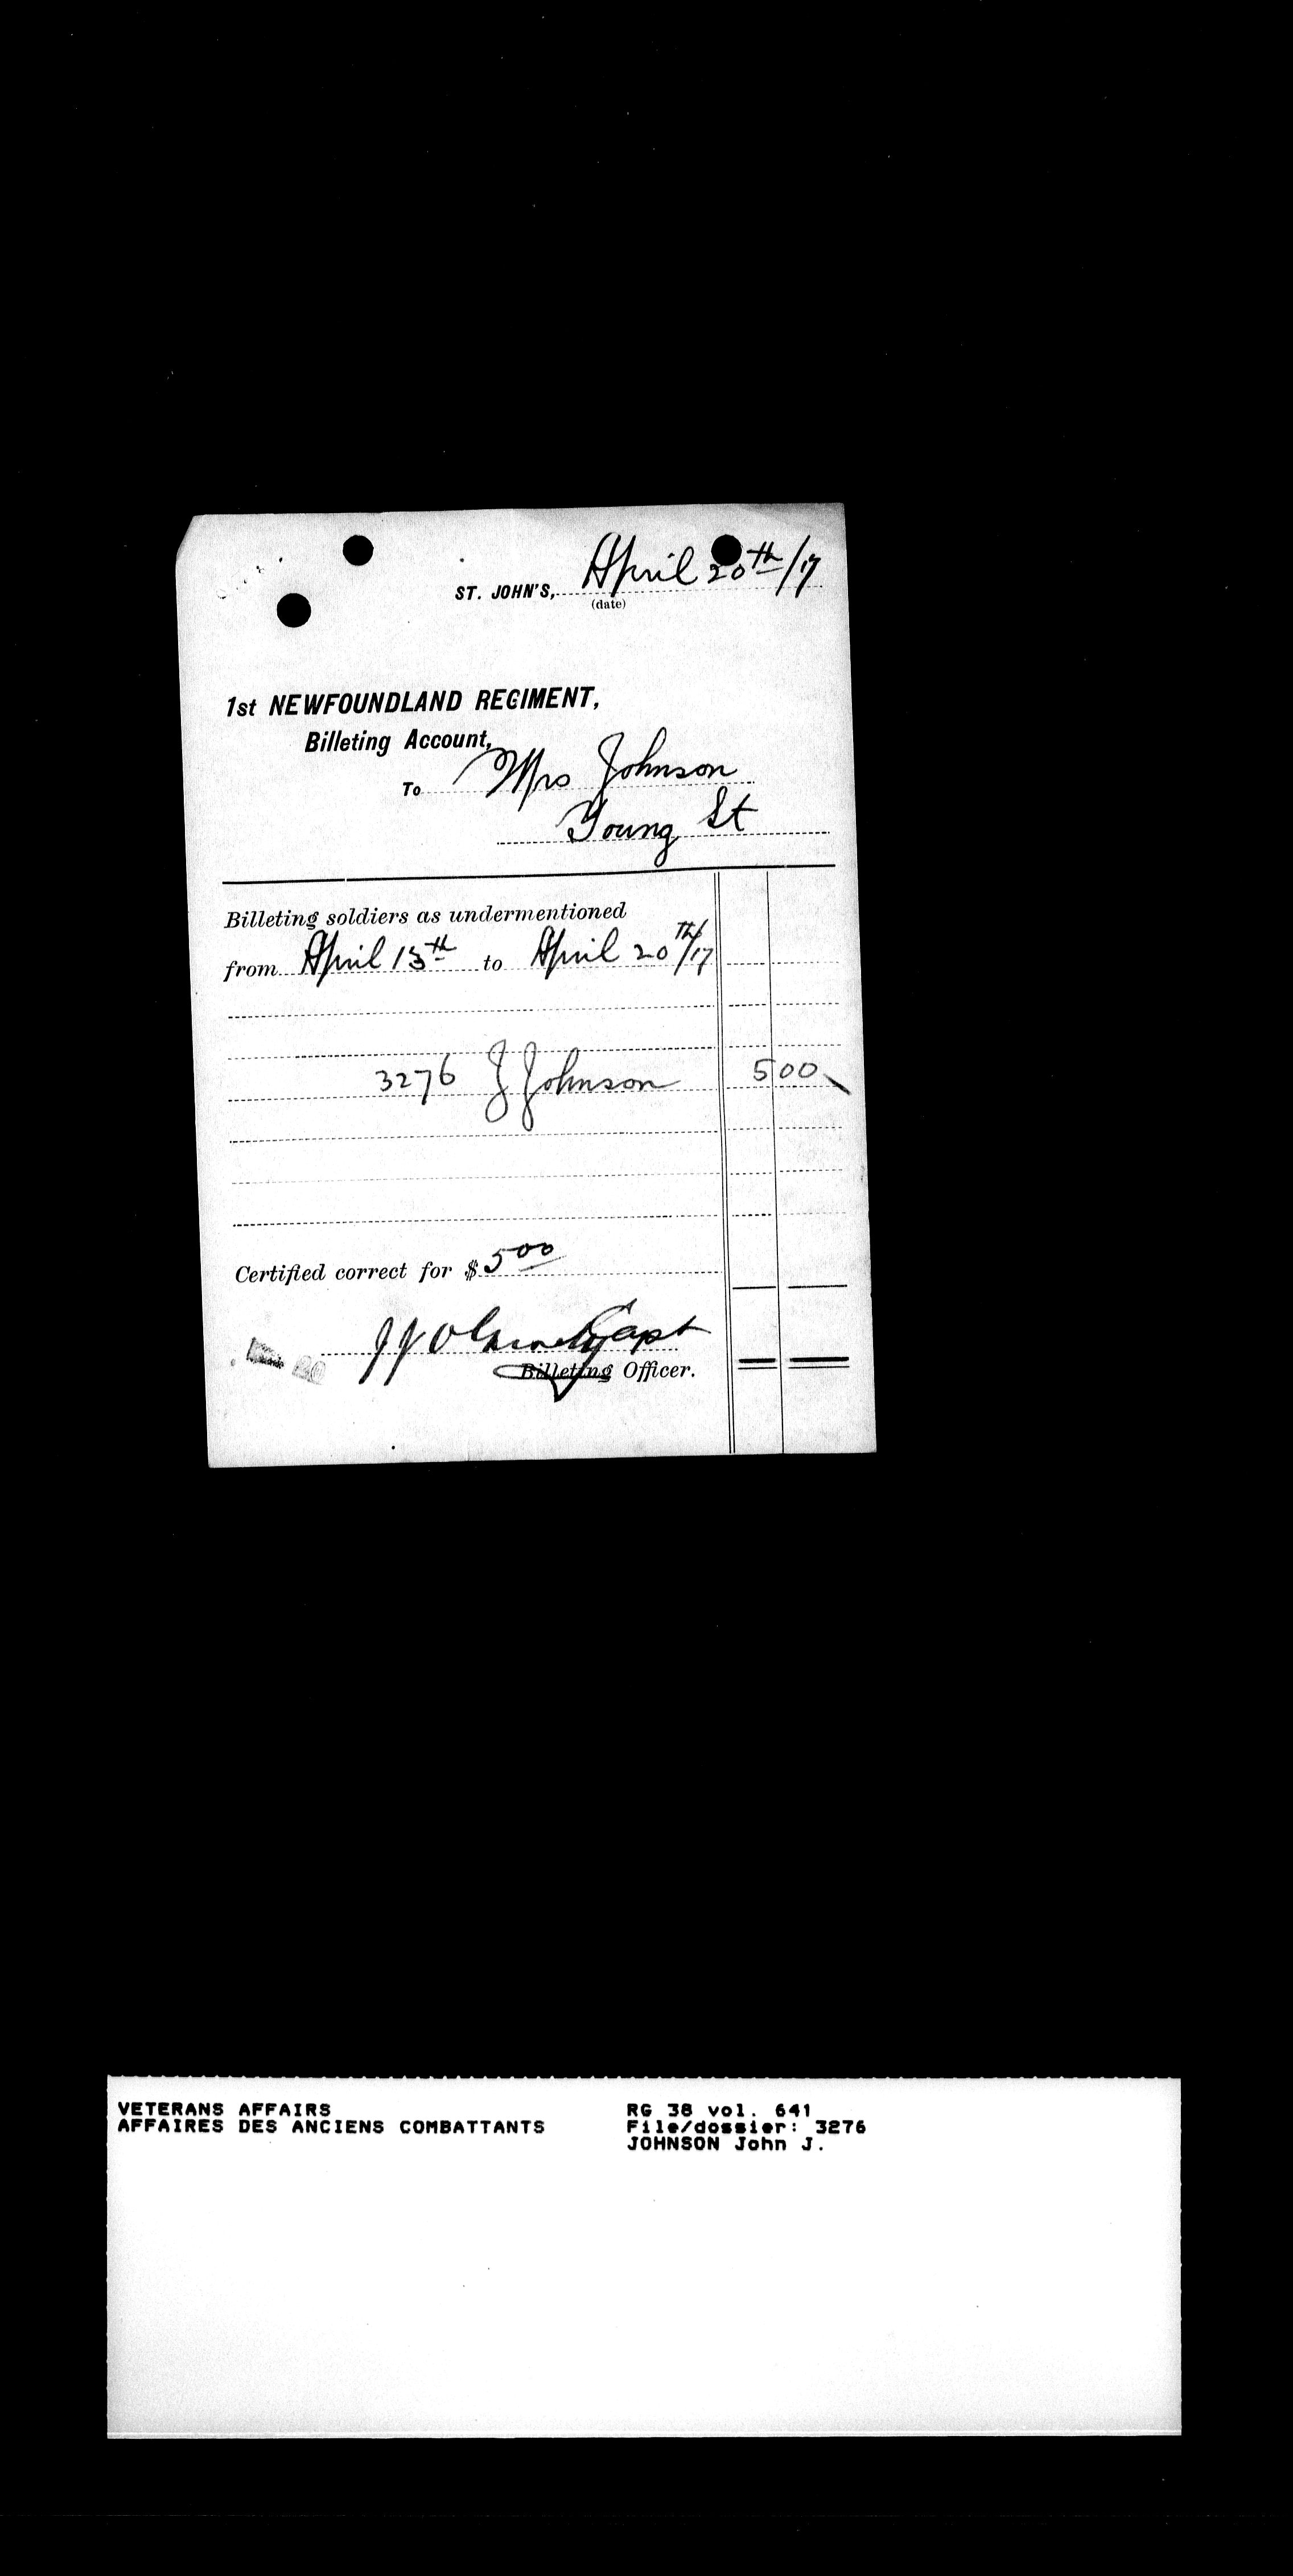 ST. JOHN'S, April 20th/17
(date)
1st NEWFOUNDLAND REGIMENT,
Billeting Account,
To Mrs Johnson
Young St
Billeting soldiers as undermentioned
from April 13th to April 20th/17
3276 J Johnson 5 00
Certified correct for $ 5 00
Capt
Billeting Officer.
VETERANS AFFAIRS
AFFAIRES DES ANCIENS COMBATTANTS
RG 38 vol. 641
File/dossier: 3276
JOHNSON John J.